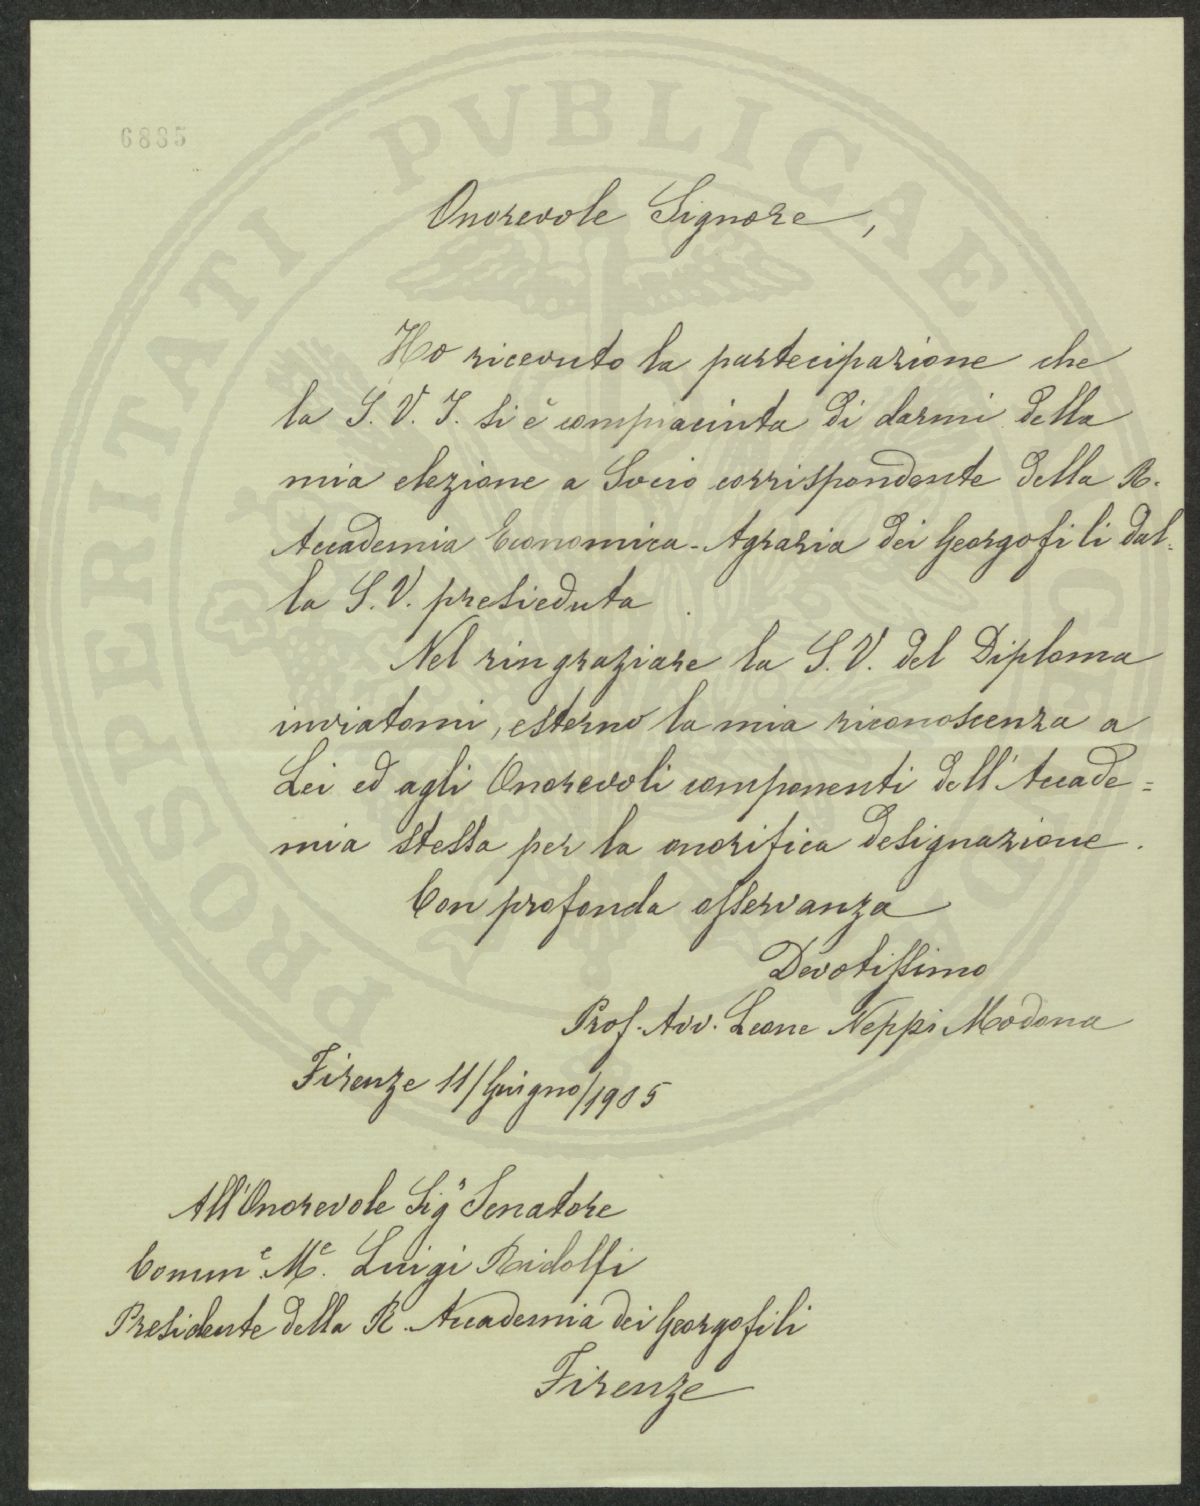 6885
Onorevole Signore,
Ho ricevuto la partecipazione che
la S. V. I. si è compiaciuta di darmi della
mia elezione a Socio corrispondente della R.
Accademia Economica-Agraria dei Georgofili dal=
la S. V. presieduta.
Nel ringraziare la S. V. del Diploma
inviatomi, esterno la mia riconoscenza a
Lei ed agli Onorevoli componenti dell'Accade=
mia stessa per la onorifica designazione.
Con profonda osservanza
Devotissimo
Prof. Avv. Leone Neppi Modona
Firenze 11/Giugno/1905
All'Onorevole Sigr Senatore
Comme. Me. Luigi Ridolfi
Presidente della R. Accademia dei Georgofili
Firenze
PROSPERITATI PVBLICAE